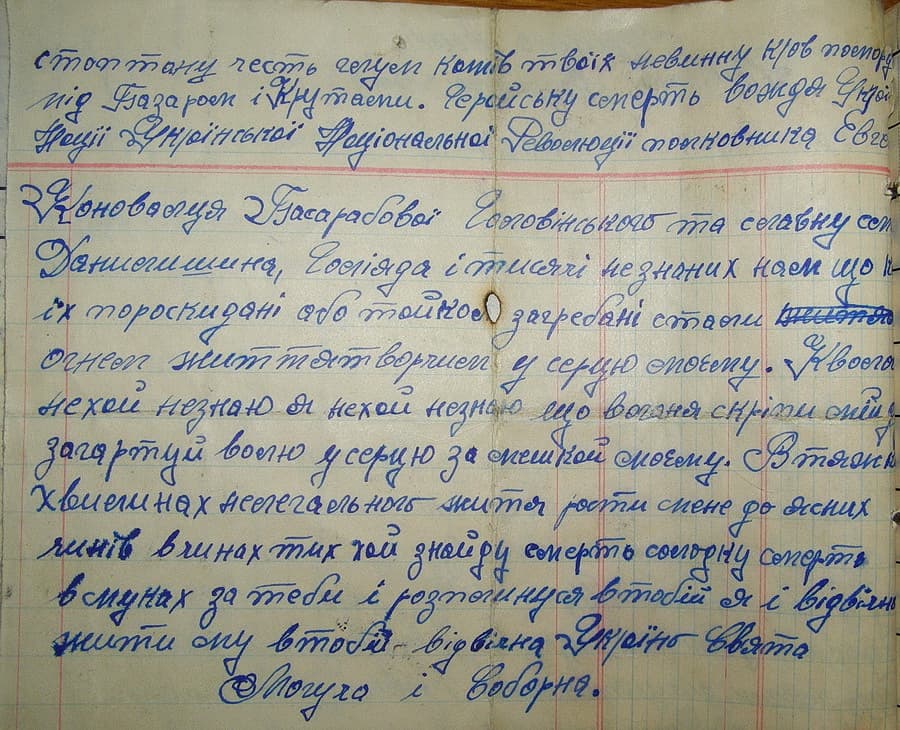 стоптану честь геуєм катів твоїх невинну кров
під Базаром і Крутами. Геройську смерть вождя Укр
Нації Української Національної Революції полковника Евге
Коновальця Басарабової Головінського та славну
Данилишина, Голіяда і тисячі незнаних нам що
їх пороскидані або тайком загребані стали
огнем життятворчим у серцю моєму.
нехой незнаю я нехой незнаю що вогана скріпи мій
загартуй волю у серцю замешкой моєму. В тяжк
хвилинах нелегального життя рости мене до ясних
чинів в чинах тих хой знайду смерть солодку смерть
в муках за тебе і розплинуся в тобій я і відвічно
жити му в тобій відвічна Україно Свята
Могуча і Соборна.